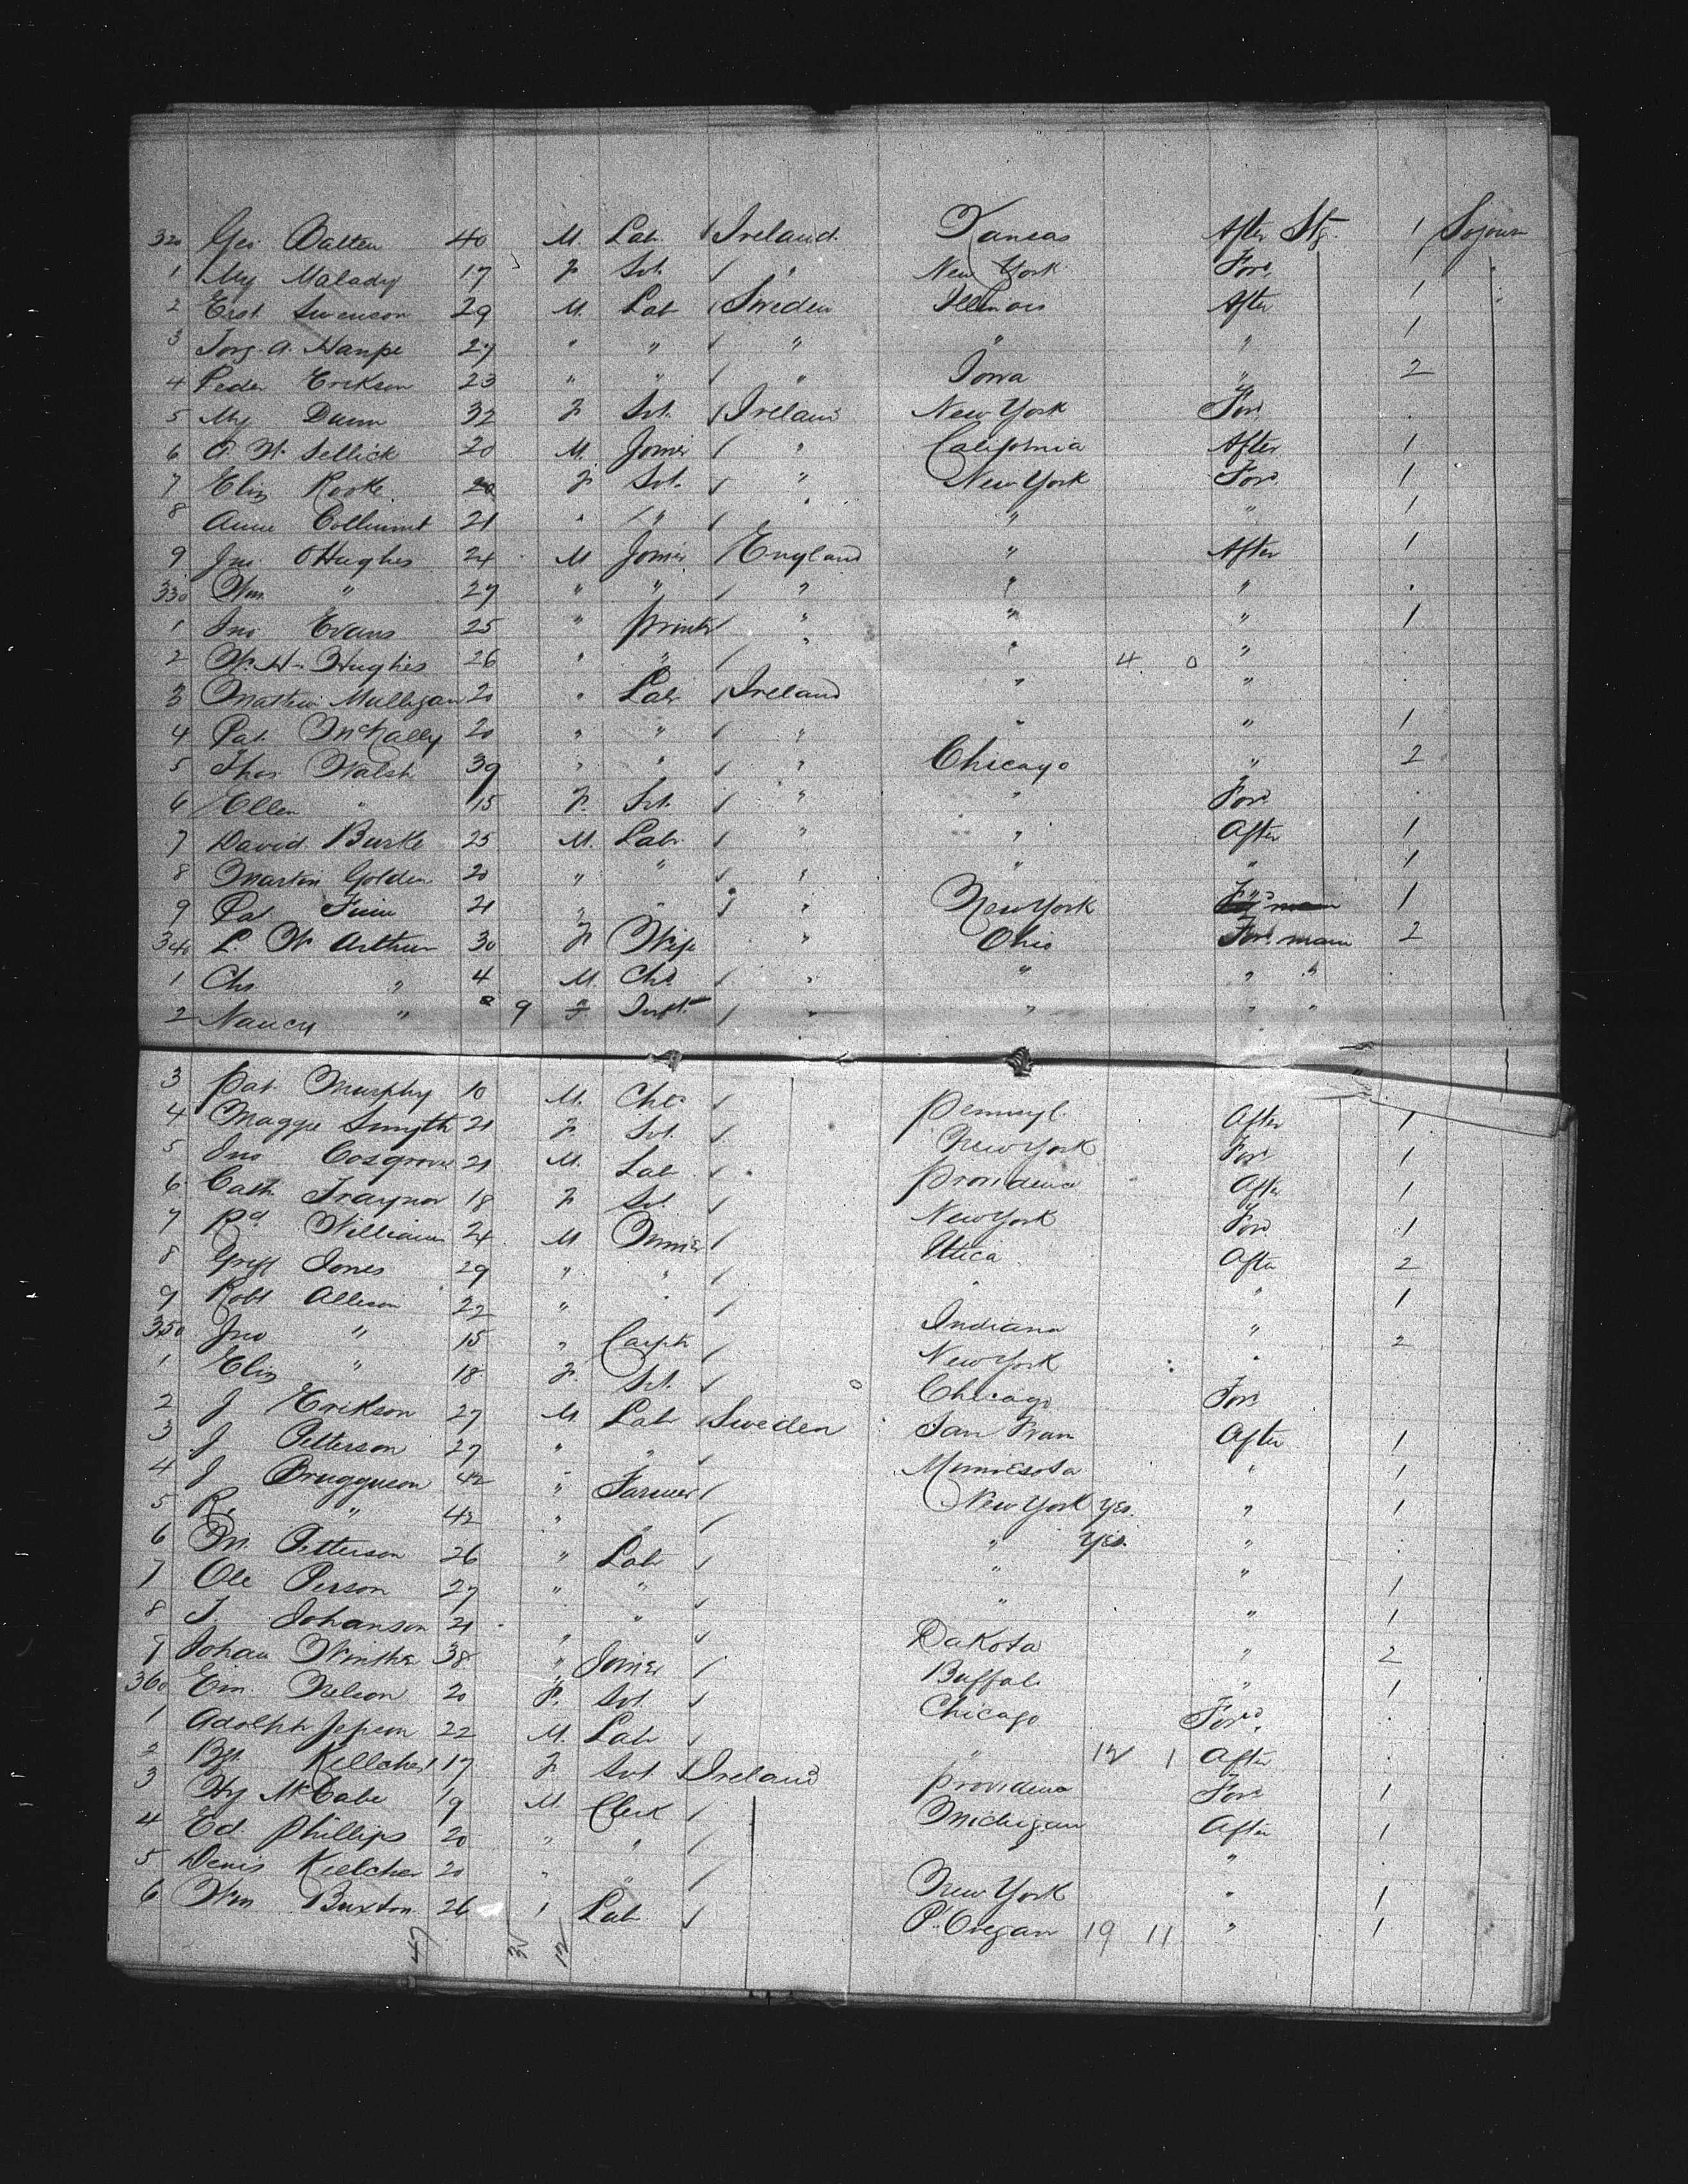 320 Geo. Dalten 40 M. Lab. Ireland. Kansas After Stg. 1 Sojourn
1 My Malady 17 F Svt. " New York Ford.
2 Erst Swenson 29 M. Lab Sweden Illinois After 1
3 Jorg. A. Hanpe 27 " " " " " 1
4 Peder Erikson 23 " " " Iowa " 2
5 My Dunn 32 F Svt. Ireland New York For
6 A. W. Sellick 20 M. Joiner " California After 1
7 Eliz Rooke 20 F Svt. " New York For. 1
8 Annie 21 " " " " 1
9 Jno. O Hughes 24 M Joiner England " After 1
330 Wm. " 27 " " " " "
1 Jno Evans 25 " Printer " " " 1
2 W. H. Hughes 26 " " " " 4 0 "
3 Mathew Mulligan 20 " Lab Ireland " "
4 Pat. McNally 20 " " " " " 1
5 Thos. Walsh 39 " " " Chicago " 2
6 Ellen " 15 F. Svt. " " For
7 David Burke 25 M. Labr. " " After 1
8 Martin Golden 20 " " " " " 1
9 Pat 21 " " " New York 1
340 L. W. Arthur 30 F Wife " Ohio For. main 2
1 Chs " 4 M Chd " " " "
2 Nancy " 9 F Inft. " " " "
3 Pat. Murphy 10 M. Chd Pennsyl. After 1
4 Maggie Smyth 21 F Svt. New York For
5 Jno Cosgrove 21 M. Lab Providence After 1
6 Cath Traynor 18 F Svt. New York For. 1
7 Rd. Williams 24 M Miner Utica After 2
8 Griff Jones 29 " " " " 1
9 Robt Allison 22 " Indiana " 2
350 Jno " 15 " Carptr New York "
1 Eliz " 18 F. Svt. Chicago For
2 J Erikson 27 M Lab Sweden San Fran After 1
3 J Petterson 27 " " Minnesota " 1
4 J 42 " Farmer New York Yes. " 1
5 R. " 42 " " " Yes. "
6 Petterson 26 " Lab " " 1
7 Ole Person 27 " " " " 1
8 J. Johanson 21 " " Dakota " 2
9 Johan Winther 38 " Joiner Buffalo " 1
360 Em. Nelson 20 F. Svt. Chicago Ford.
1 Adolph Jepson 22 M. Lab " 12 1 After
2 Bgt. Kellcher 17 F Svt Ireland Providence For 1
3 Hy McCabe 19 M. Clerk Michigan After 1
4 Ed. Phillips 20 " " "
5 Denis Kellcher 20 " " New York " 1
6 Wm Buxton 26 1 Lab P. Oregan 19 11 " 1
47 3 12